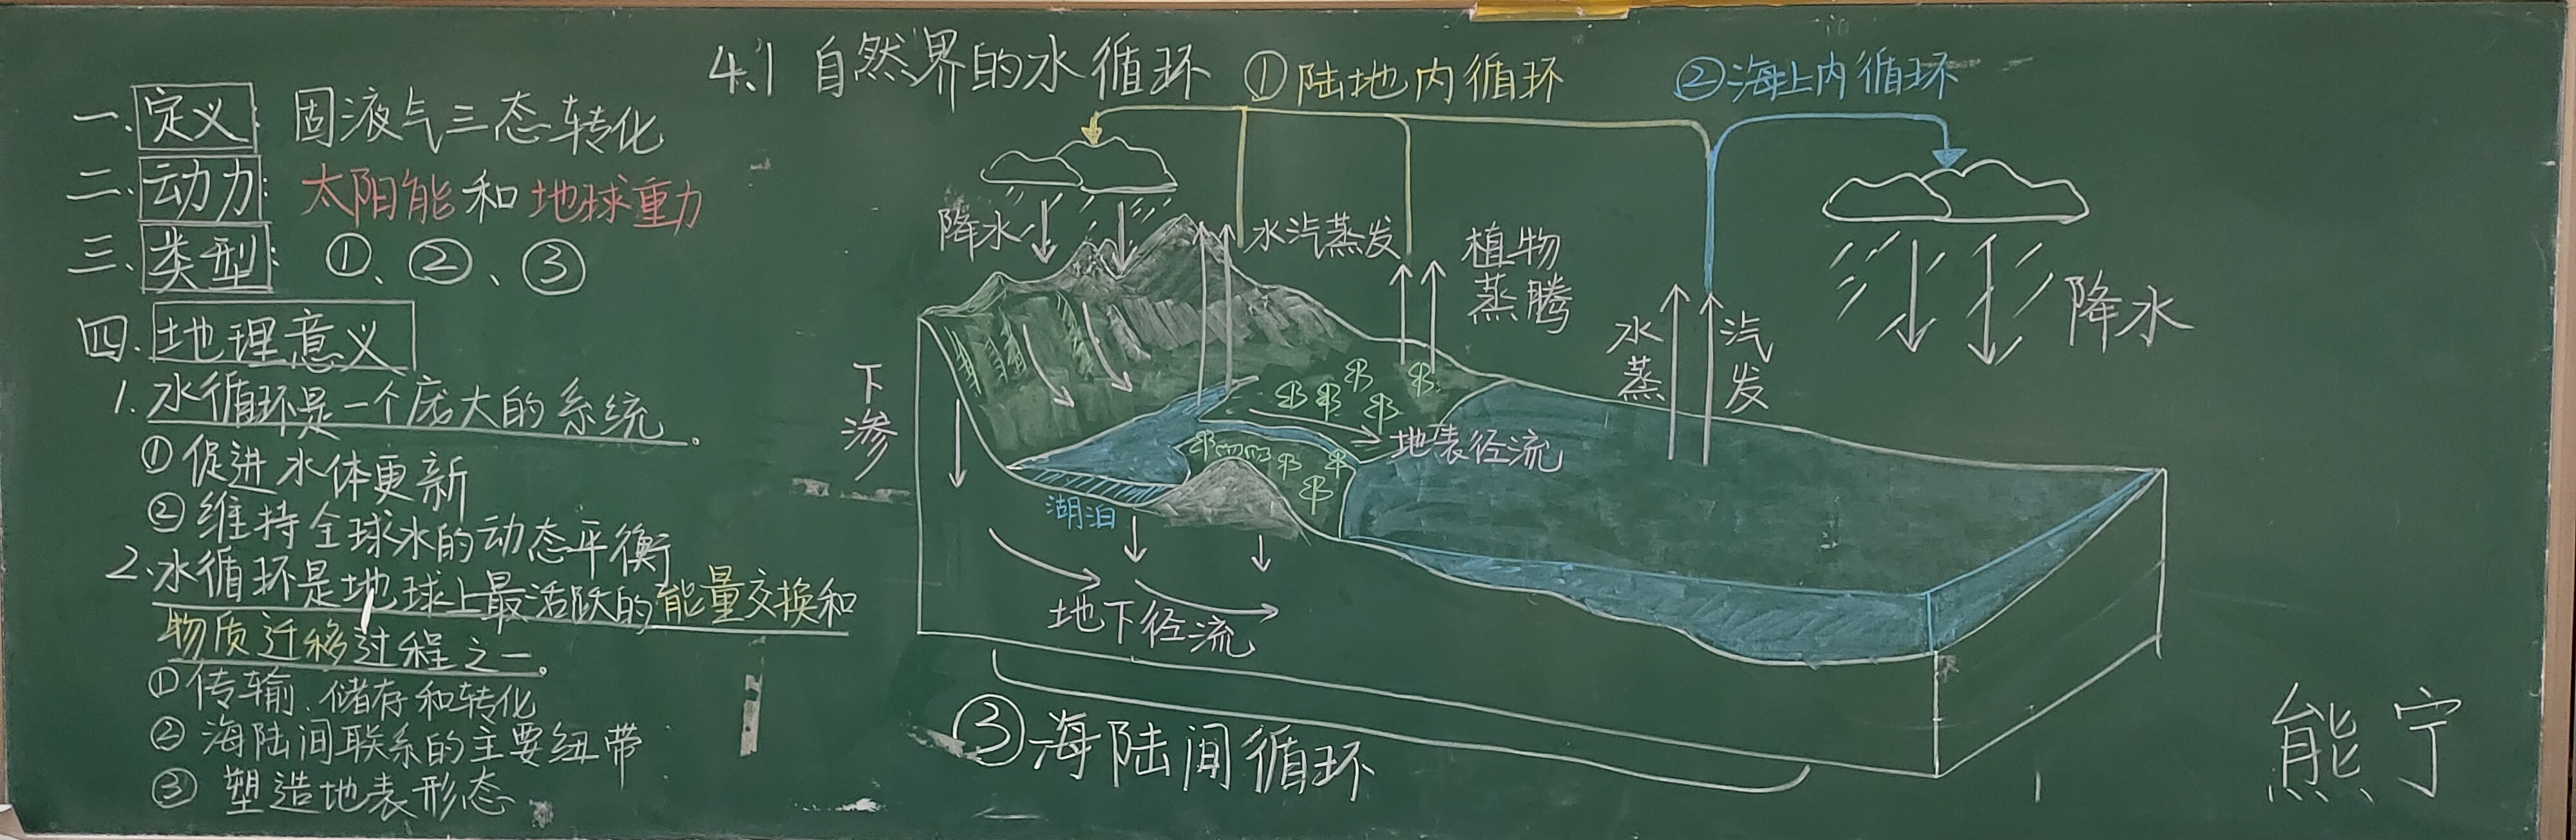 4.1 自然界的水循环
一、定义：固液气三态转化
二、动力：太阳能和地球重力
三、类型：①、②、③
四、地理意义
1. 水循环是一个庞大的系统。
①促进水体更新
②维持全球水的动态平衡
2. 水循环是地球上最活跃的能量交换和
物质迁移过程之一。
①传输、储存和转化
②海陆间联系的主要纽带
③塑造地表形态
①陆地内循环
②海上内循环
降水
水汽蒸发
植物
蒸腾
水汽
蒸发
降水
下渗
地表径流
湖泊
地下径流
③海陆间循环
熊宁